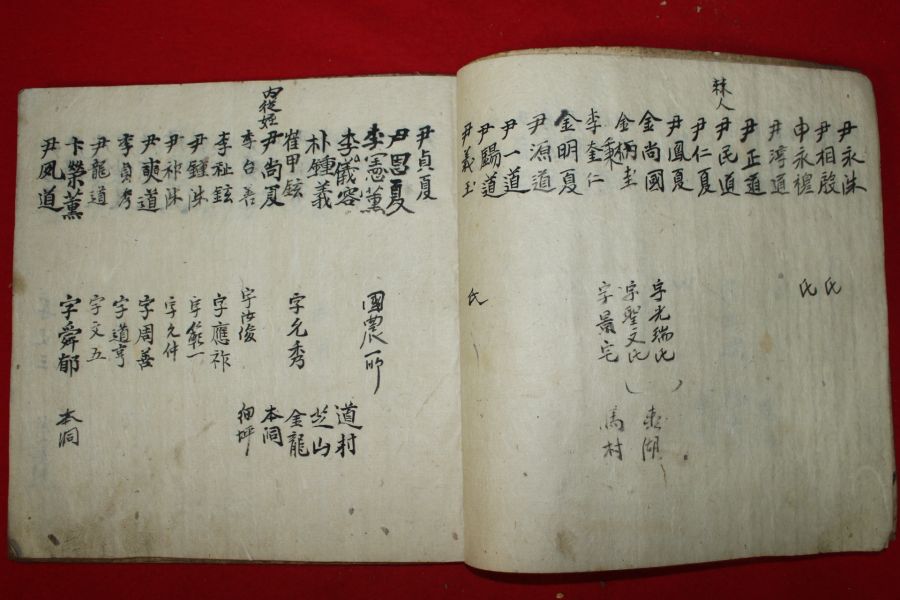 尹永洙
尹相殷 氏
申永禮 氏
尹濤道
尹正道
棘人
尹民道
尹仁夏
尹鳳夏
金尚國 字光瑞氏 東湖
金炳圭 字聖文氏
李奎仁 字景宅 馬村
金明夏
尹源道
尹一道
尹錫道
尹義玉 氏
尹貞夏
尹思夏
李憲薰 國農所
李儀容 道村
朴鍾義 芝山
崔甲鉉 字允秀 金龍
內從姪
尹尚夏 本洞
李台吾 字汝俊 細坪
李祉鉉 字應祚
尹鍾洙 字範一
尹祚洙 字允仲
尹奭道 字周善
李貞秀 字道亨
尹龍道 字文五
卞榮薰 字舜郁 本洞
尹鳳道